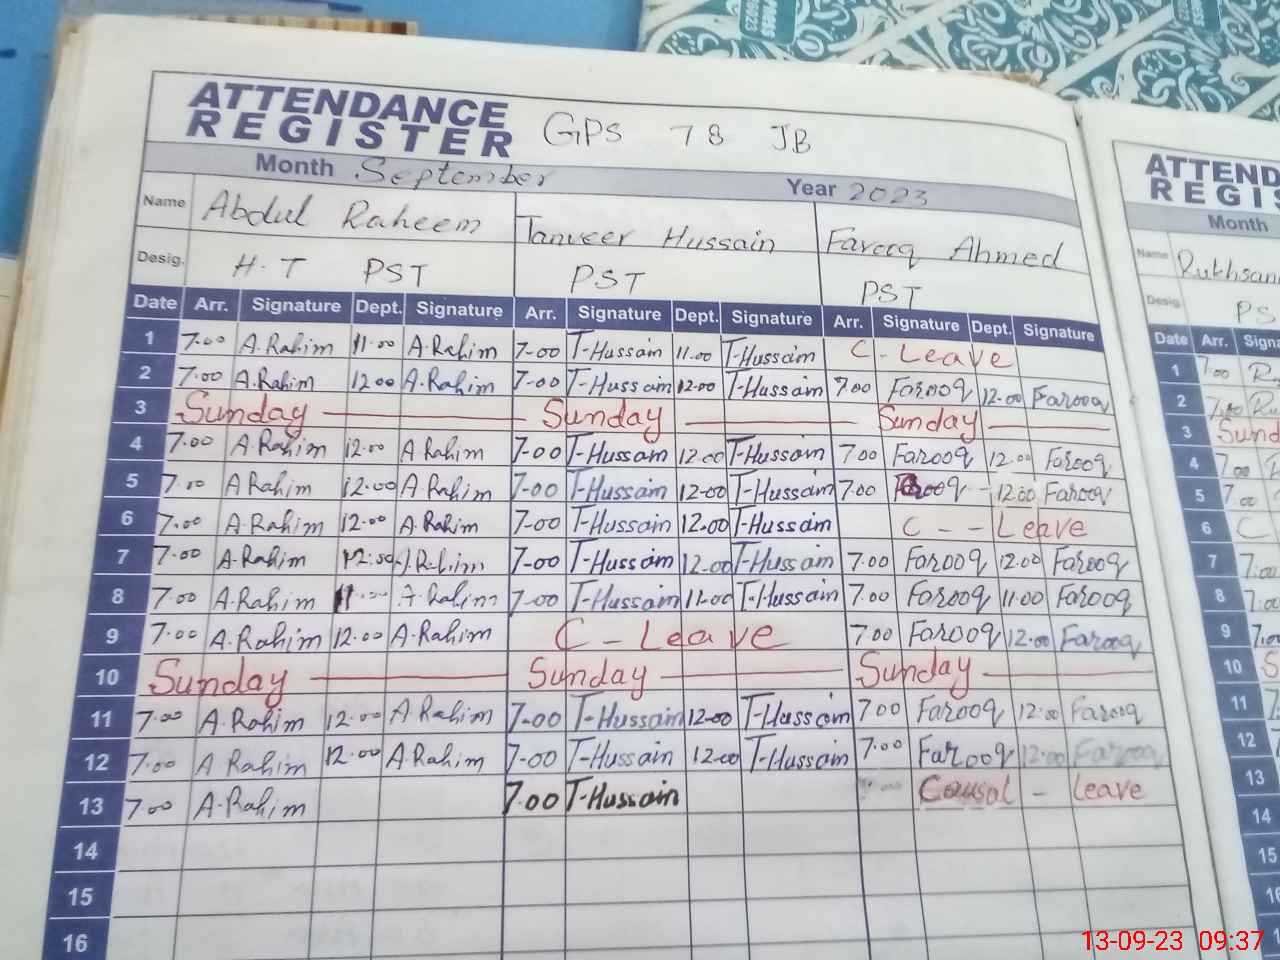 ATTENDANCE
REGISTER GPS 78 JB
Month September Year 2023
Name Abdul Raheem Tanveer Hussain Farooq Ahmed
Desig. H.T PST PST PST
Date Arr. Signature Dept. Signature Arr. Signature Dept. Signature Arr. Signature Dept. Signature
1 7.00 A.Rahim 11.00 A.Rahim 7-00 T-Hussain 11.00 T-Hussain C - Leave
2 7.00 A.Rahim 12.00 A.Rahim 7-00 T-Hussain 12.00 T-Hussain 7.00 Farooq 12.00 Farooq
3 Sunday Sunday Sunday
4 7.00 A.Rahim 12.00 A.Rahim 7-00 T-Hussain 12.00 T-Hussain 7.00 Farooq 12.00 Farooq
5 7.00 A.Rahim 12.00 A.Rahim 7-00 T-Hussain 12-00 T-Hussain 7.00 Farooq 12.00 Farooq
6 7.00 A.Rahim 12.00 A.Rahim 7-00 T-Hussain 12.00 T-Hussain C - - Leave
7 7.00 A.Rahim 12.00 A.Rahim 7-00 T-Hussain 12.00 T-Hussain 7.00 Farooq 12.00 Farooq
8 7.00 A.Rahim 11.00 A.Rahim 7-00 T-Hussain 11.00 T-Hussain 7.00 Farooq 11.00 Farooq
9 7.00 A.Rahim 12.00 A.Rahim C - Leave 7.00 Farooq 12.00 Farooq
10 Sunday Sunday Sunday
11 7.00 A.Rahim 12.00 A.Rahim 7-00 T-Hussain 12-00 T-Hussain 7.00 Farooq 12.00 Farooq
12 7.00 A.Rahim 12.00 A.Rahim 7-00 T-Hussain 12.00 T-Hussain 7.00 Farooq 12.00 Farooq
13 7.00 A.Rahim 7.00 T-Hussain - Leave
14
15
16
ATTEND
REGIS
Month
Name Rukhsan
Desig PS
Date Arr. Signa
1 7.00
2
3 Sund
4 7.00
5 7.00
6 C
7 7.00
8 7.00
9
10 S
11
12
13
14
15
13-09-23 09:37